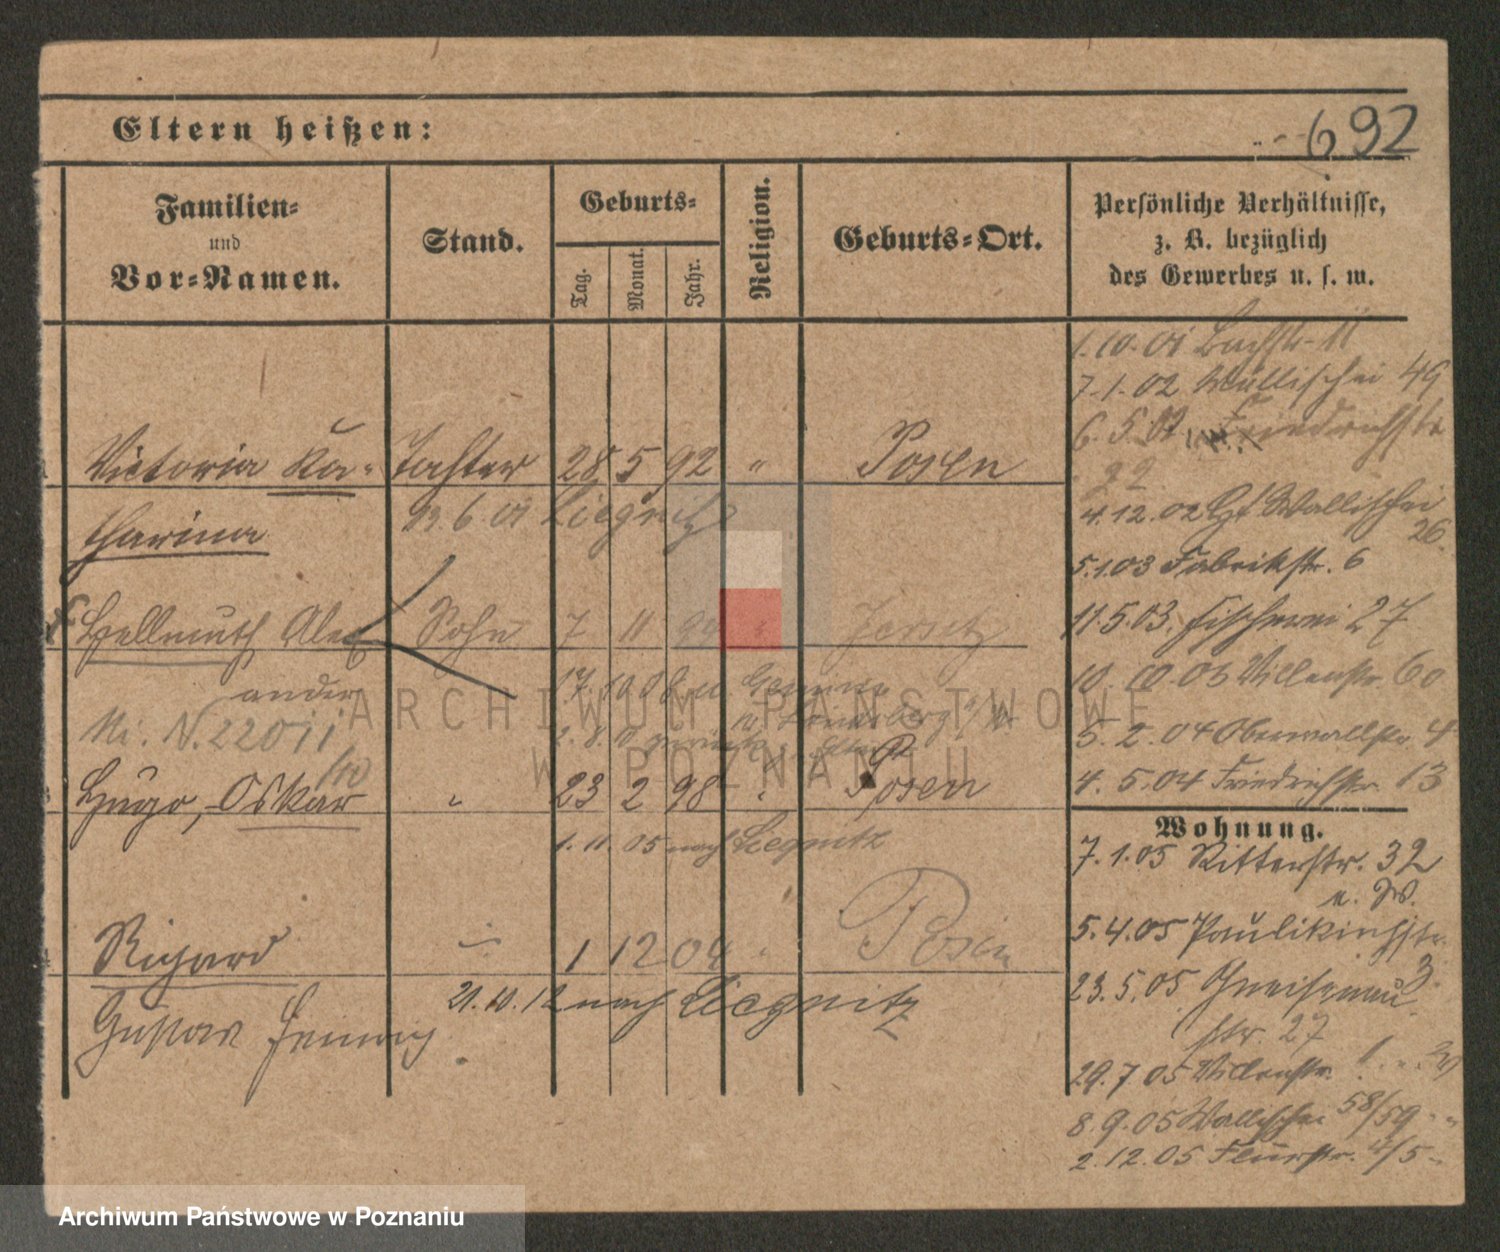 Eltern heißen:
692
Familien-
und
Vor-Namen.
Stand.
Geburts-
Tag.
Monat.
Jahr.
Religion.
Geburts-Ort.
Persönliche Verhältnisse,
z. B. bezüglich
des Gewerbes u. s. w.
1.10.01 Bachstr. 11
7.1.02 Wallischei 49
6.5.02 Friedrichstr.
22
Victoria Ka- Tochter 28 5 92 " Posen
tharina
6.01 Liegnitz
4.12.02 Wallischei
26.
5.1.03 Fabrikstr. 6
Hellmuth Alex Sohn 7 11 94 " Jersitz
ander
11.5.03. Fischerei 27
17.10.08 n.
10.10.03 Villenstr. 60
N. 22011
5.2.04 Oberwallstr. 4
Hugo, Oskar " 23 2 98 " Posen
4.5.04 Friedrichstr. 13
Wohnung.
1.11.05 nach Liegnitz
7.1.05 Ritterstr. 32
Richard 1 12 04 " Posen
5.4.05 Paulikirchstr.
3
21.10.12 nach Liegnitz
23.5.05 Gneisenau
str. 27
Gustav
29.7.05 Villenstr.
8.9.05 Wallischei 58/59
2.12.05 Flurstr. 4/5
ARCHIWUM PAŃSTWOWE
W POZNANIU
Archiwum Państwowe w Poznaniu